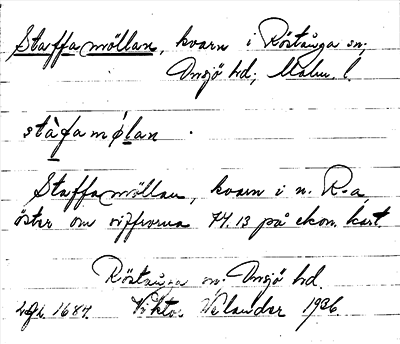 Staffamöllan, kvarn i Röstånga sn;
Onsjö hd; Malm. l.
stàfamǿlan
Staffamöllan, kvarn i n. R-a,
öster om siffrorna 74.13 på ekon. kart.
Röstånga sn. Onsjö hd.
1684. Viktor Velander 1936.